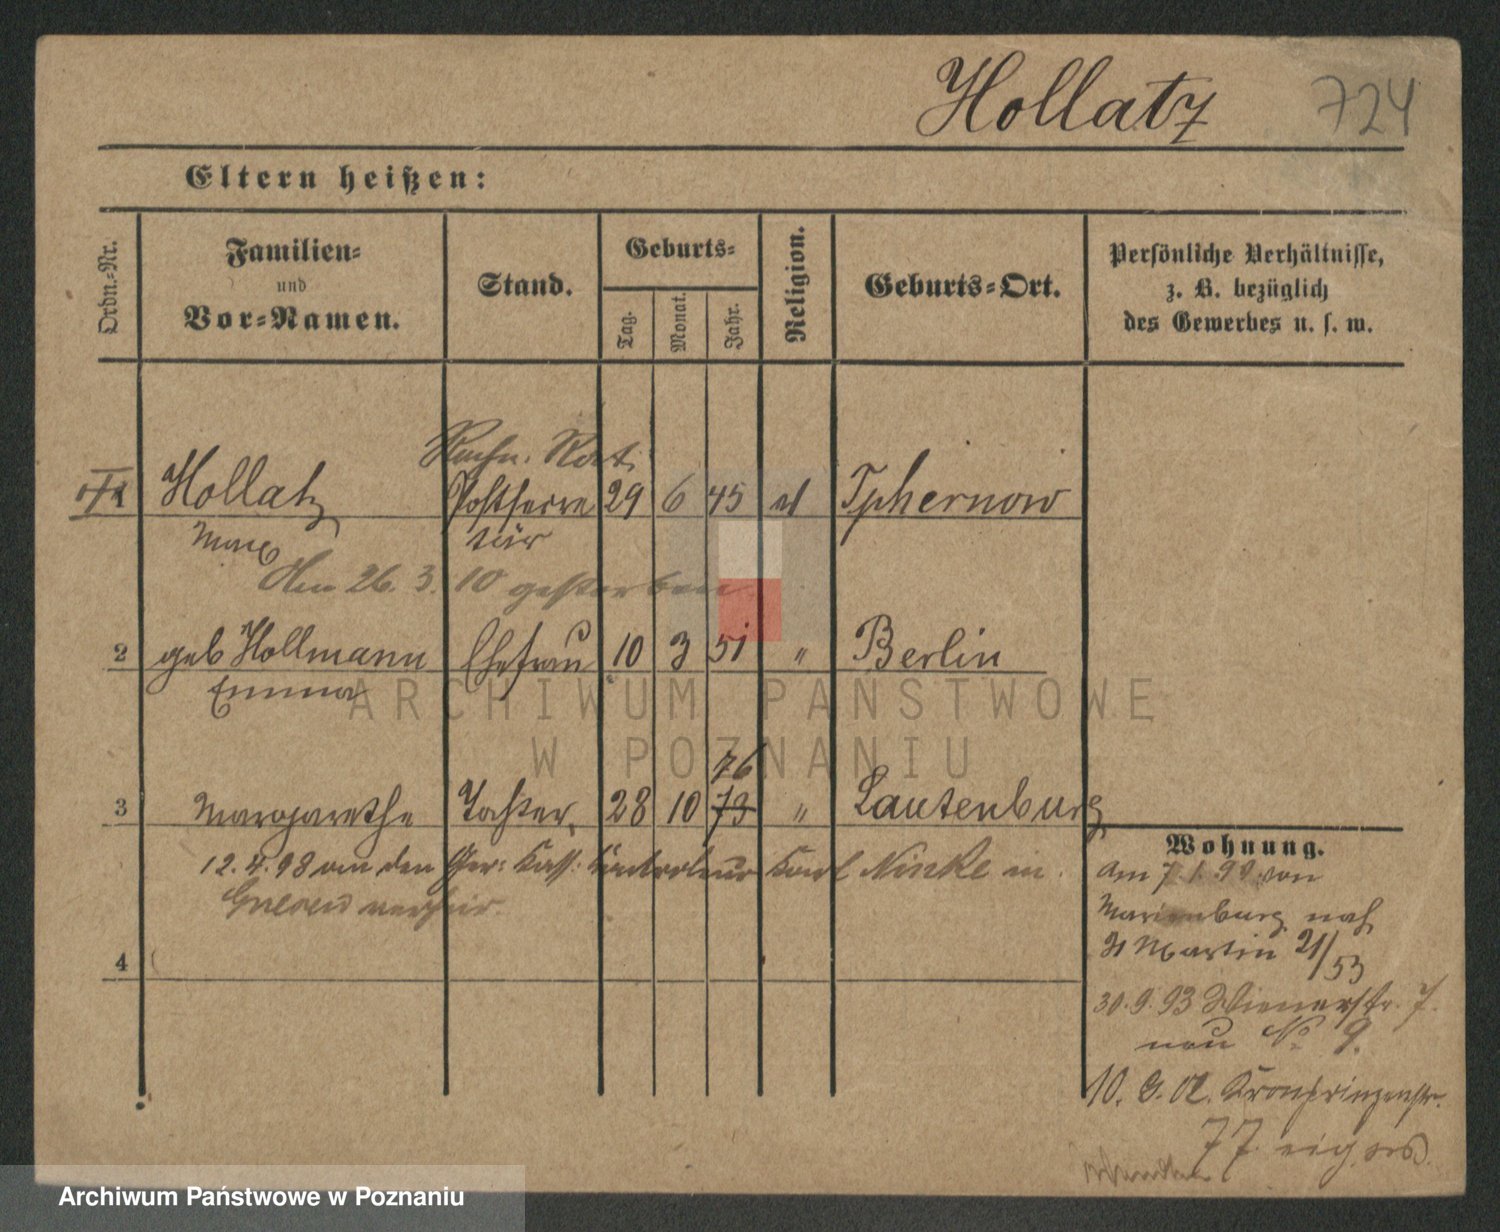 Hollatz 724
Eltern heißen:
Ordn.-Nr.
Familien-
und
Vor-Namen.
Stand.
Geburts-
Tag.
Monat.
Jahr.
Religion.
Geburts-Ort.
Persönliche Verhältnisse,
z. B. bezüglich
des Gewerbes u. s. w.
Rechn. Rat.
Hollatz Postsecre 29 6 45 ev Tschernow
Max tair
Am 26. 3. 10 gestorben
2 geb Hollmann Ehefrau 10 3 51 " Berlin
Emma
76
3 Margarethe Tochter 28 10 73 " Lautenburg
12. 4. 98 an den Ger: Kass: Kontroleur Karl Ninke in
Gnesen verheir.
4
Wohnung.
Am 7. 1. 90 von
Marienburg nach
St Martin 21/53
30. 9. 93 Wienerstr. 7.
neu No 9.
10. 9. 02. Kronprinzenstr.
77
ARCHIWUM PAŃSTWOWE
W POZNANIU
Archiwum Państwowe w Poznaniu